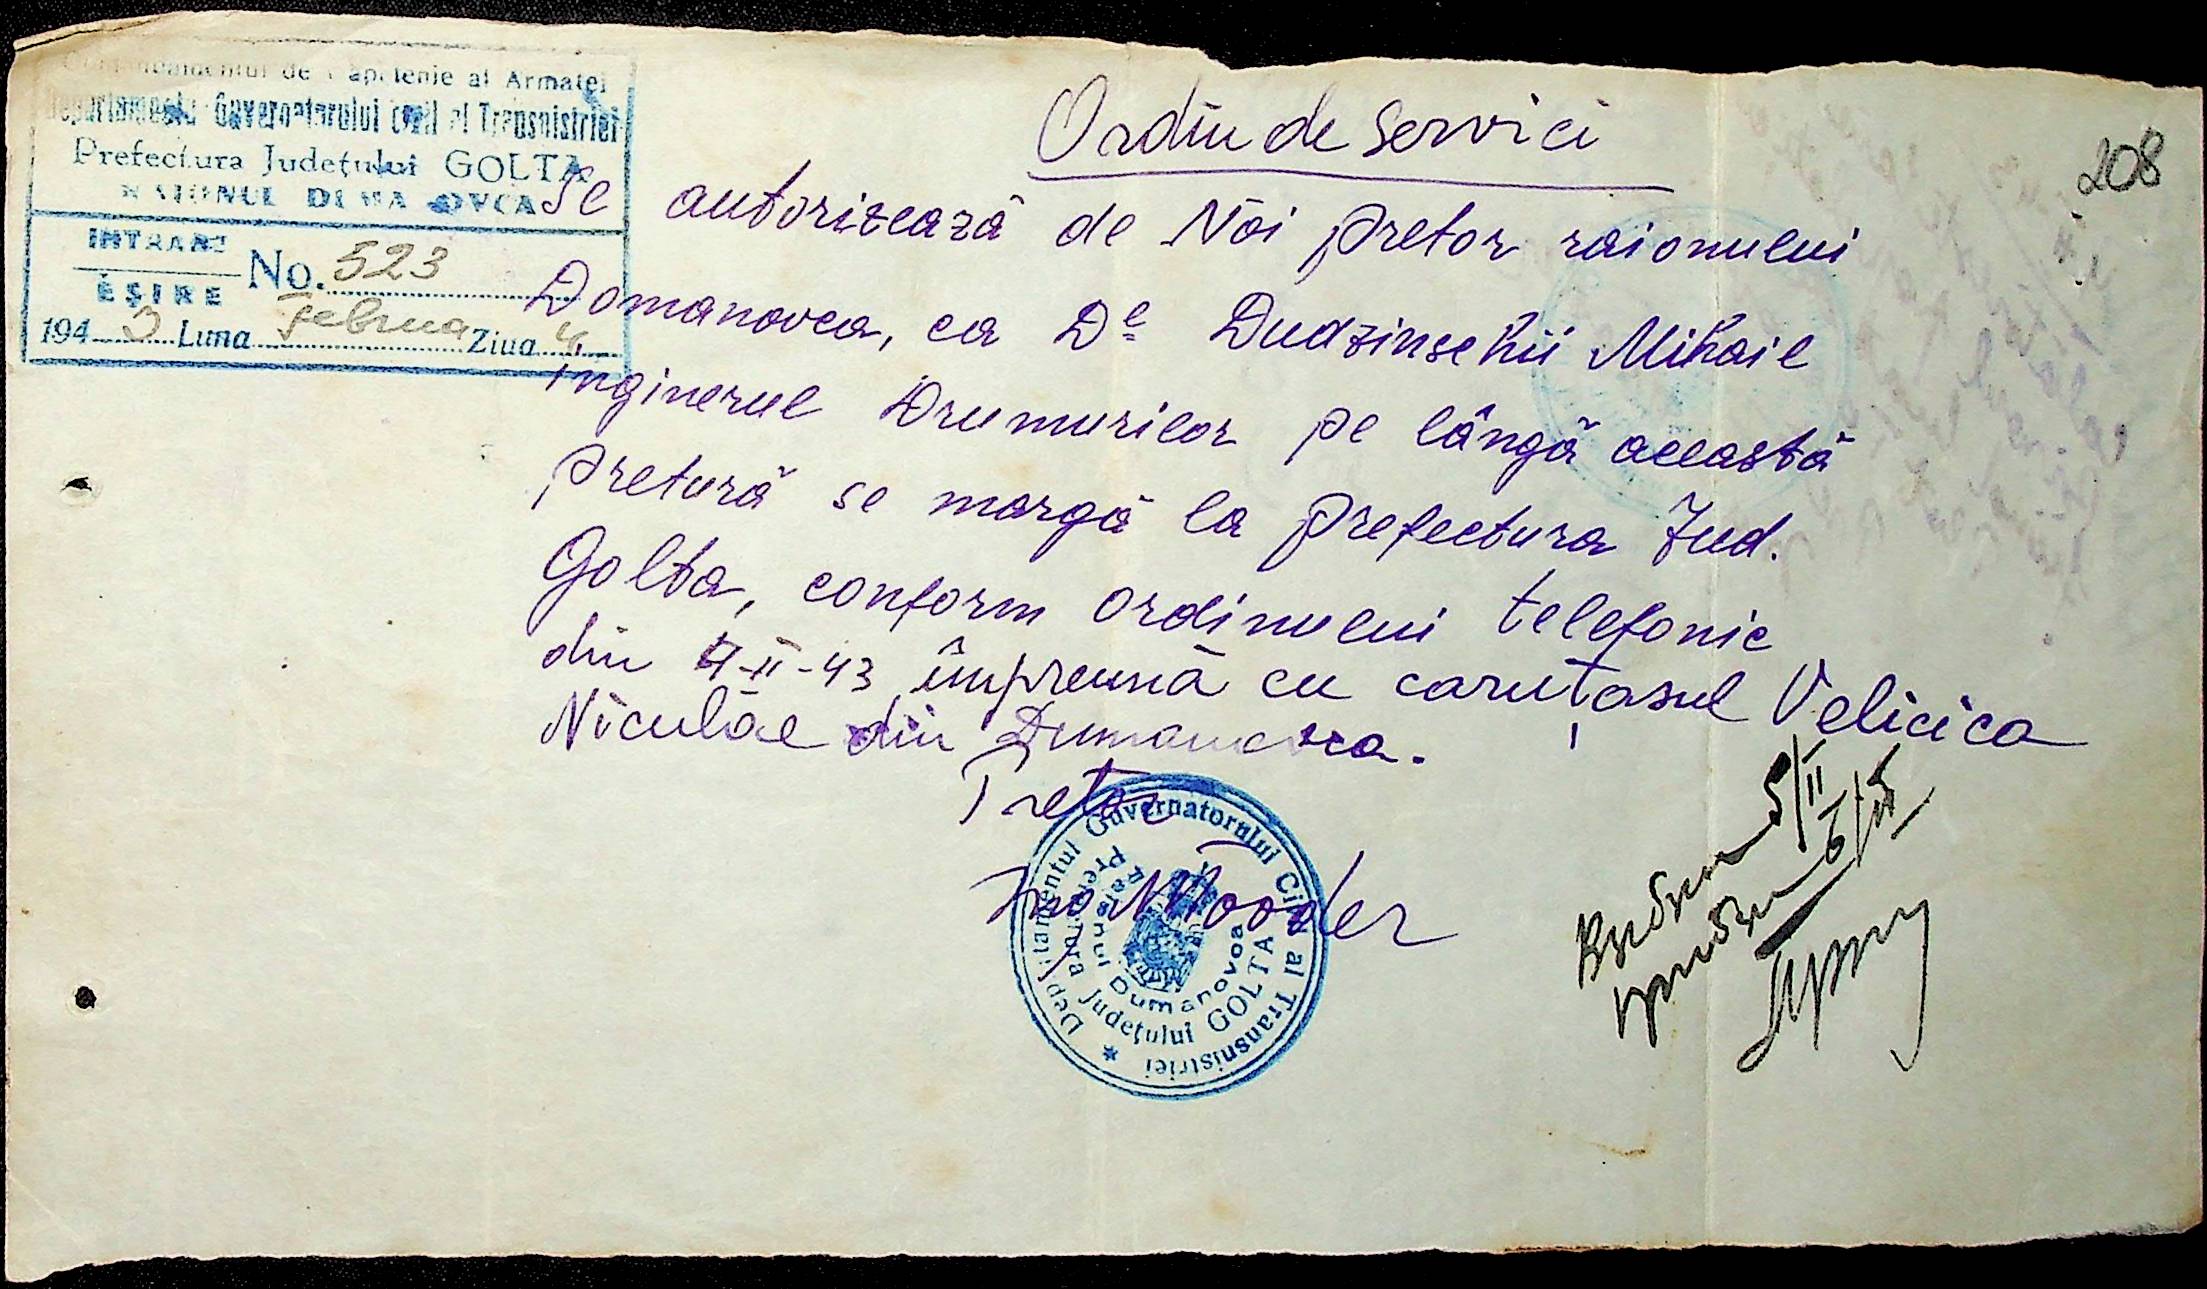 Comandamentul de Capitenie al Armatei
Departamentul Guvernatorului Civil al Transnistriei
Prefectura Județului GOLTA
RAIONUL DUMANOVCA
INTRARE
EȘIRE
No. 523
194 3 Luna Februa Ziua 4
208
Ordin de Servici
Se autorizează de Noi pretor raionului
Domanovca, ca Dl Dudzinschii Mihail
inginerul Drumurilor pe lângă această
pretură se margă la prefectura Jud.
Golta, conform ordinului telefonic
din 4-II-43 împreună cu caruțasul Velicica
Niculae din Dumanovca.
Pretor
Departamentul Guvernatorului Civil al Transnistriei
Pretura Județului GOLTA
Raionul Dumanovca
5/II
6/II